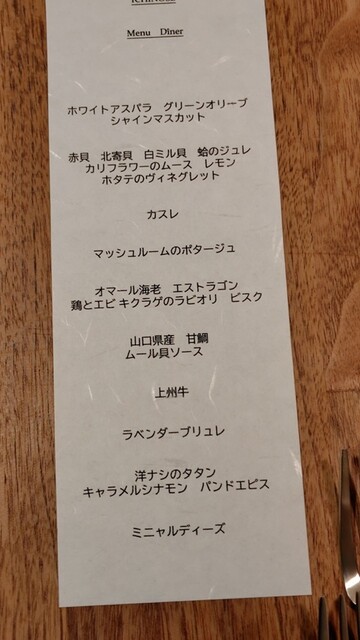 Menu Dîner
ホワイトアスパラ　グリーンオリーブ
シャインマスカット
赤貝　北寄貝　白ミル貝　蛤のジュレ
カリフラワーのムース　レモン
ホタテのヴィネグレット
カスレ
マッシュルームのポタージュ
オマール海老　エストラゴン
鶏とエビ キクラゲのラビオリ　ビスク
山口県産　甘鯛
ムール貝ソース
上州牛
ラベンダーブリュレ
洋ナシのタタン
キャラメルシナモン　パンドエピス
ミニャルディーズ